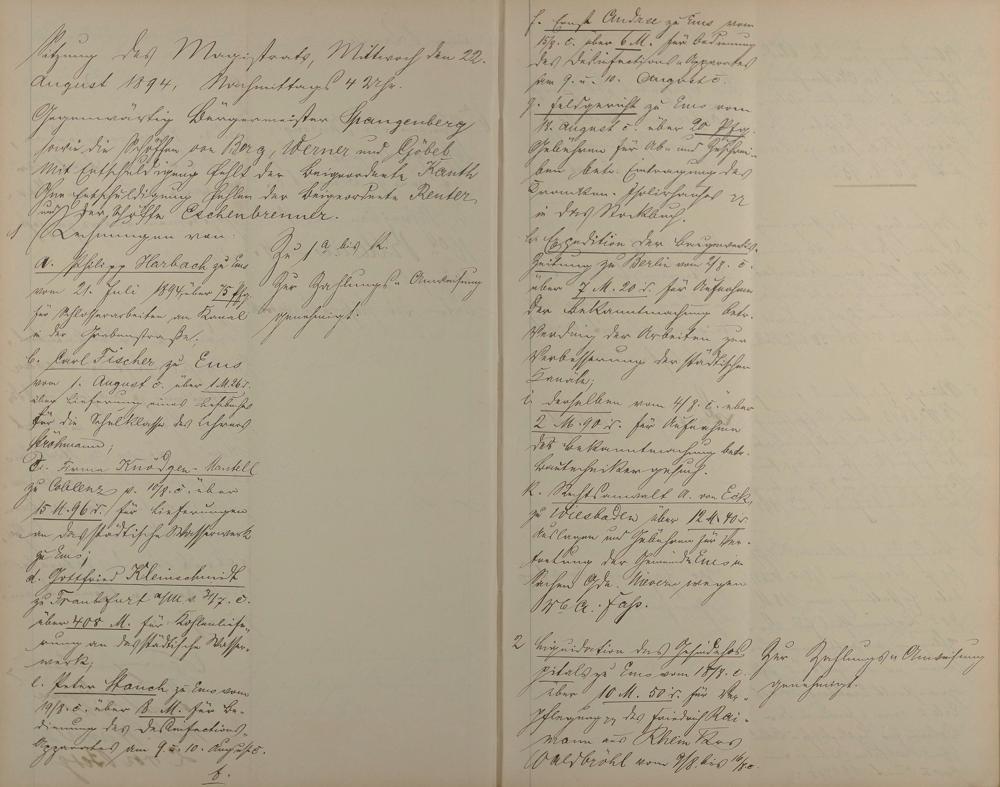 Sitzung des Magistrats, Mittwoch den 22.
August 1894, Nachmittags 4 Uhr.
Gegenwärtig Bürgermeister Spangenberg
sowie die Schöffen von Berg, Werner und Göbel
Mit Entschuldigung fehlt der Beigeordnete Kauth
Ohne Entschuldigung fehlen der Beigeordnete Reuter
und der Schöffe Eschenbrenner.
1 Rechnungen von:
a. Philipp Harbach zu Ems
vom 21. Juli 1894 über 75 Pfg.
für Schlosserarbeiten am Kanal
in der Grabenstraße.
b. Carl Fischer zu Ems
vom 1. August c. über 1 M. 26
über Lieferung eines
für die Schulklasse des Lehrers
c. Firma Knödgen-Mantell
zu Coblenz v. 10/8. c. über
15 M. 96 für Lieferungen
an das städtische Wasserwerk
zu Ems;
d. Gottfried Kleinschmidt
zu Frankfurt a/M v. 3/7. c.
über 408 M. für Kohlenliefe-
rung an das städtische Wasser-
werk;
e. Peter Stauch zu Ems vom
19/8. c. über 8 M. für Be-
dienung des Desinfections-
Apparates am 9. u. 10. August c.
f.
Zu 1 a bis k.
Zur Zahlungs-Anweisung
genehmigt.
f. Ernst Andree zu Ems vom
15/8. c. über 6 M. für Bedienung
des Desinfections-Apparates
am 9. u. 10. August c.
g. Feldgericht zu Ems vom
August c. über 20 Pfg.
Gebühren für Ab- und Zuschrei-
ben betr. Eintragung des
Kranken-Isolirhauses
in das Stockbuch.
h. Expedition der Baugewerks-
Zeitung zu Berlin vom 2/8. c.
über 7 M. 20 für Aufnahme
der Bekanntmachung betr.
Verding der Arbeiten zur
Verbesserung der städtischen
Kanäle;
i. derselben vom 4/8. c. über
2 M. 90 für Aufnahme
der Bekanntmachung betr.
Bautechnikergesuch.
k. Rechtsanwalt A. von Eck
zu Wiesbaden über 12 M. 40
Auslagen und Gebühren für Ver-
tretung der Gemeinde Ems in
Sachen Gde. Nievern wegen
2 Liquidation des Gesindehos-
pitals zu Ems vom 18/8. c.
über 10 M. 50 für Ver-
pflegung des Friedrich Rai-
mann aus Rhein Kreis
Waldbröhl vom 9/8. bis 16/8 c.
Zur Zahlungs-Anweisung
genehmigt.